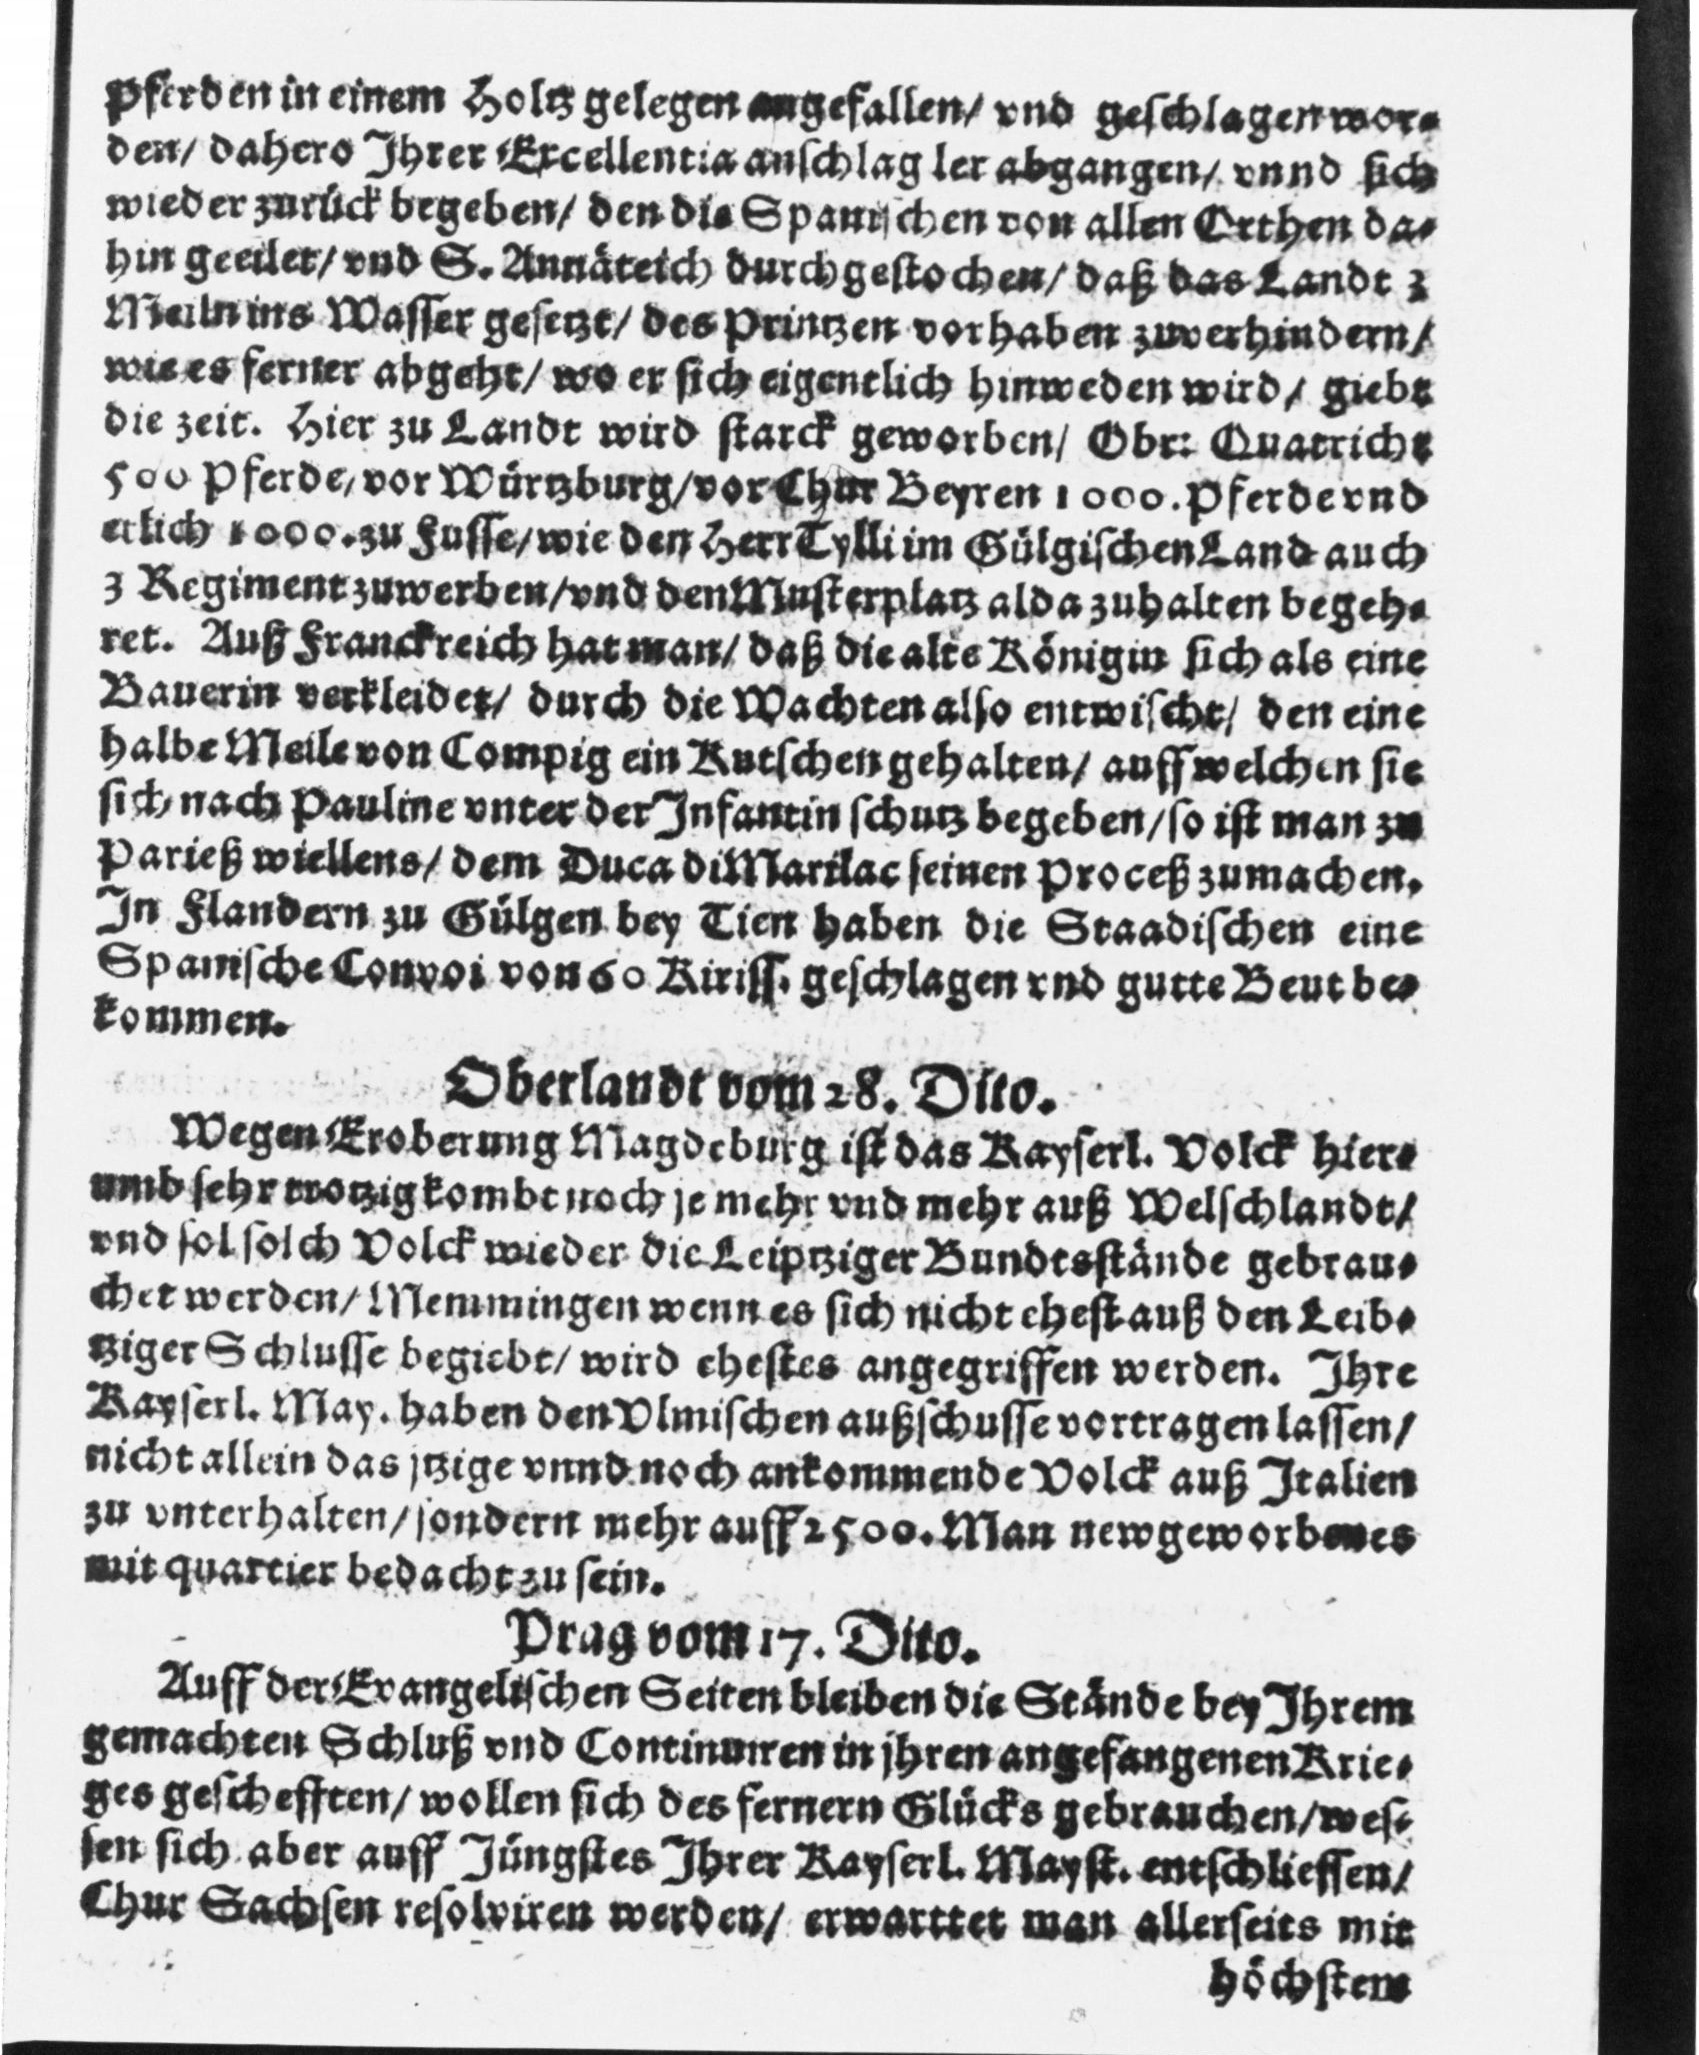 Pferden in einem Holtz gelegen angefallen/ vnd geschlagen wor-
den/ dahero Ihrer Excellentia anschlag ler abgangen/ vnnd sich
wieder zurück begeben/ den die Spanischen von allen Orthen da-
hin geeilet/ vnd S. Annäteich durchgestochen/ daß das Landt 3
Meiln ins Wasser gesetzt/ des Printzen vorhaben zuverhindern/
wie es ferner abgeht/ wo er sich eigentlich hinweden wird/ giebt
die zeit. Hier zu Landt wird starck geworben/ Obr: Quatricht
500 Pferde/ vor Würtzburg/ vor Chur Beyren 1000. Pferde vnd
etlich 1000. zu Fusse/ wie den Herr Tylli im Gülgischen Land auch
3 Regiment zuwerben/ vnd den Musterplatz alda zuhalten begeh-
ret. Auß Franckreich hat man/ daß die alte Königin sich als eine
Bauerin verkleidet/ durch die Wachten also entwischt/ den eine
halbe Meile von Compig ein Kutschen gehalten/ auff welchen sie
sich nach Pauline vnter der Infantin schutz begeben/ so ist man zu
Parieß wiellens/ dem Duca di Marilac seinen Proceß zumachen.
In Flandern zu Gülgen bey Tien haben die Staadischen eine
Spanische Convoi von 60 Kiriss. geschlagen vnd gutte Beut be-
kommen.
Oberlandt vom 28. Dito.
Wegen Eroberung Magdeburg ist das Kayserl. Volck hier-
umb sehr trotzig kombt noch je mehr vnd mehr auß Welschlandt/
vnd sol solch Volck wieder die Leiptziger Bundtsstände gebrau-
chet werden/ Memmingen wenn es sich nicht ehest auß den Leib-
tziger Schlusse begiebt/ wird ehestes angegriffen werden. Ihre
Kayserl. May. haben den Vlmischen außschusse vortragen lassen/
nicht allein das jtzige vnnd noch ankommende Volck auß Italien
zu vnterhalten/ sondern mehr auff 2500. Man newgeworbenes
mit quartier bedacht zu sein.
Prag vom 17. Dito.
Auff der Evangelischen Seiten bleiben die Stände bey Ihrem
gemachten Schluß vnd Continuiren in jhren angefangenen Krie-
ges geschefften/ wollen sich des fernern Glücks gebrauchen/ wes-
sen sich aber auff Jüngstes Ihrer Kayserl. Mayst. entschliessen/
Chur Sachsen resolviren werden/ erwarttet man allerseits mit
höchstem